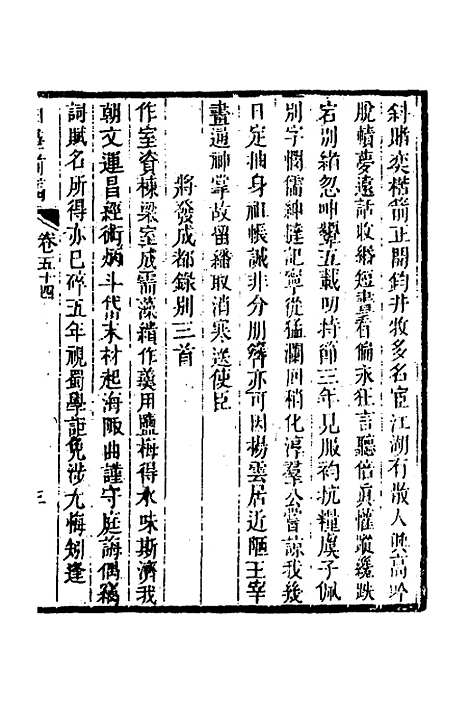 斜賭奕楷箭正開鈞井牧多名宦江湖有散人興高吟
脫幘夢遠話收緡短晝看偏永狂言聽倍眞懽蹤纔跌
宕別緒忽呻顰五載叨持節三年見服衿抗糧虞子佩
別字憫儒紳撻記寧從猛瀾回稍化淳羣公嘗諒我幾
日定抽身祖帳誠非分朋簪亦可因楊雲居近陋王宰
畫通神掌故留縑取消寒送使臣
將發成都錄別三首
作室資棟梁室成需藻繢作羹用鹽梅得水味斯濟我
朝文運昌經術炳斗
末材起海陬曲謹守庭誨偶竊
詞賦名所得亦已碎五年視蜀學詎免涉尤悔矧逢
卷五十四
三